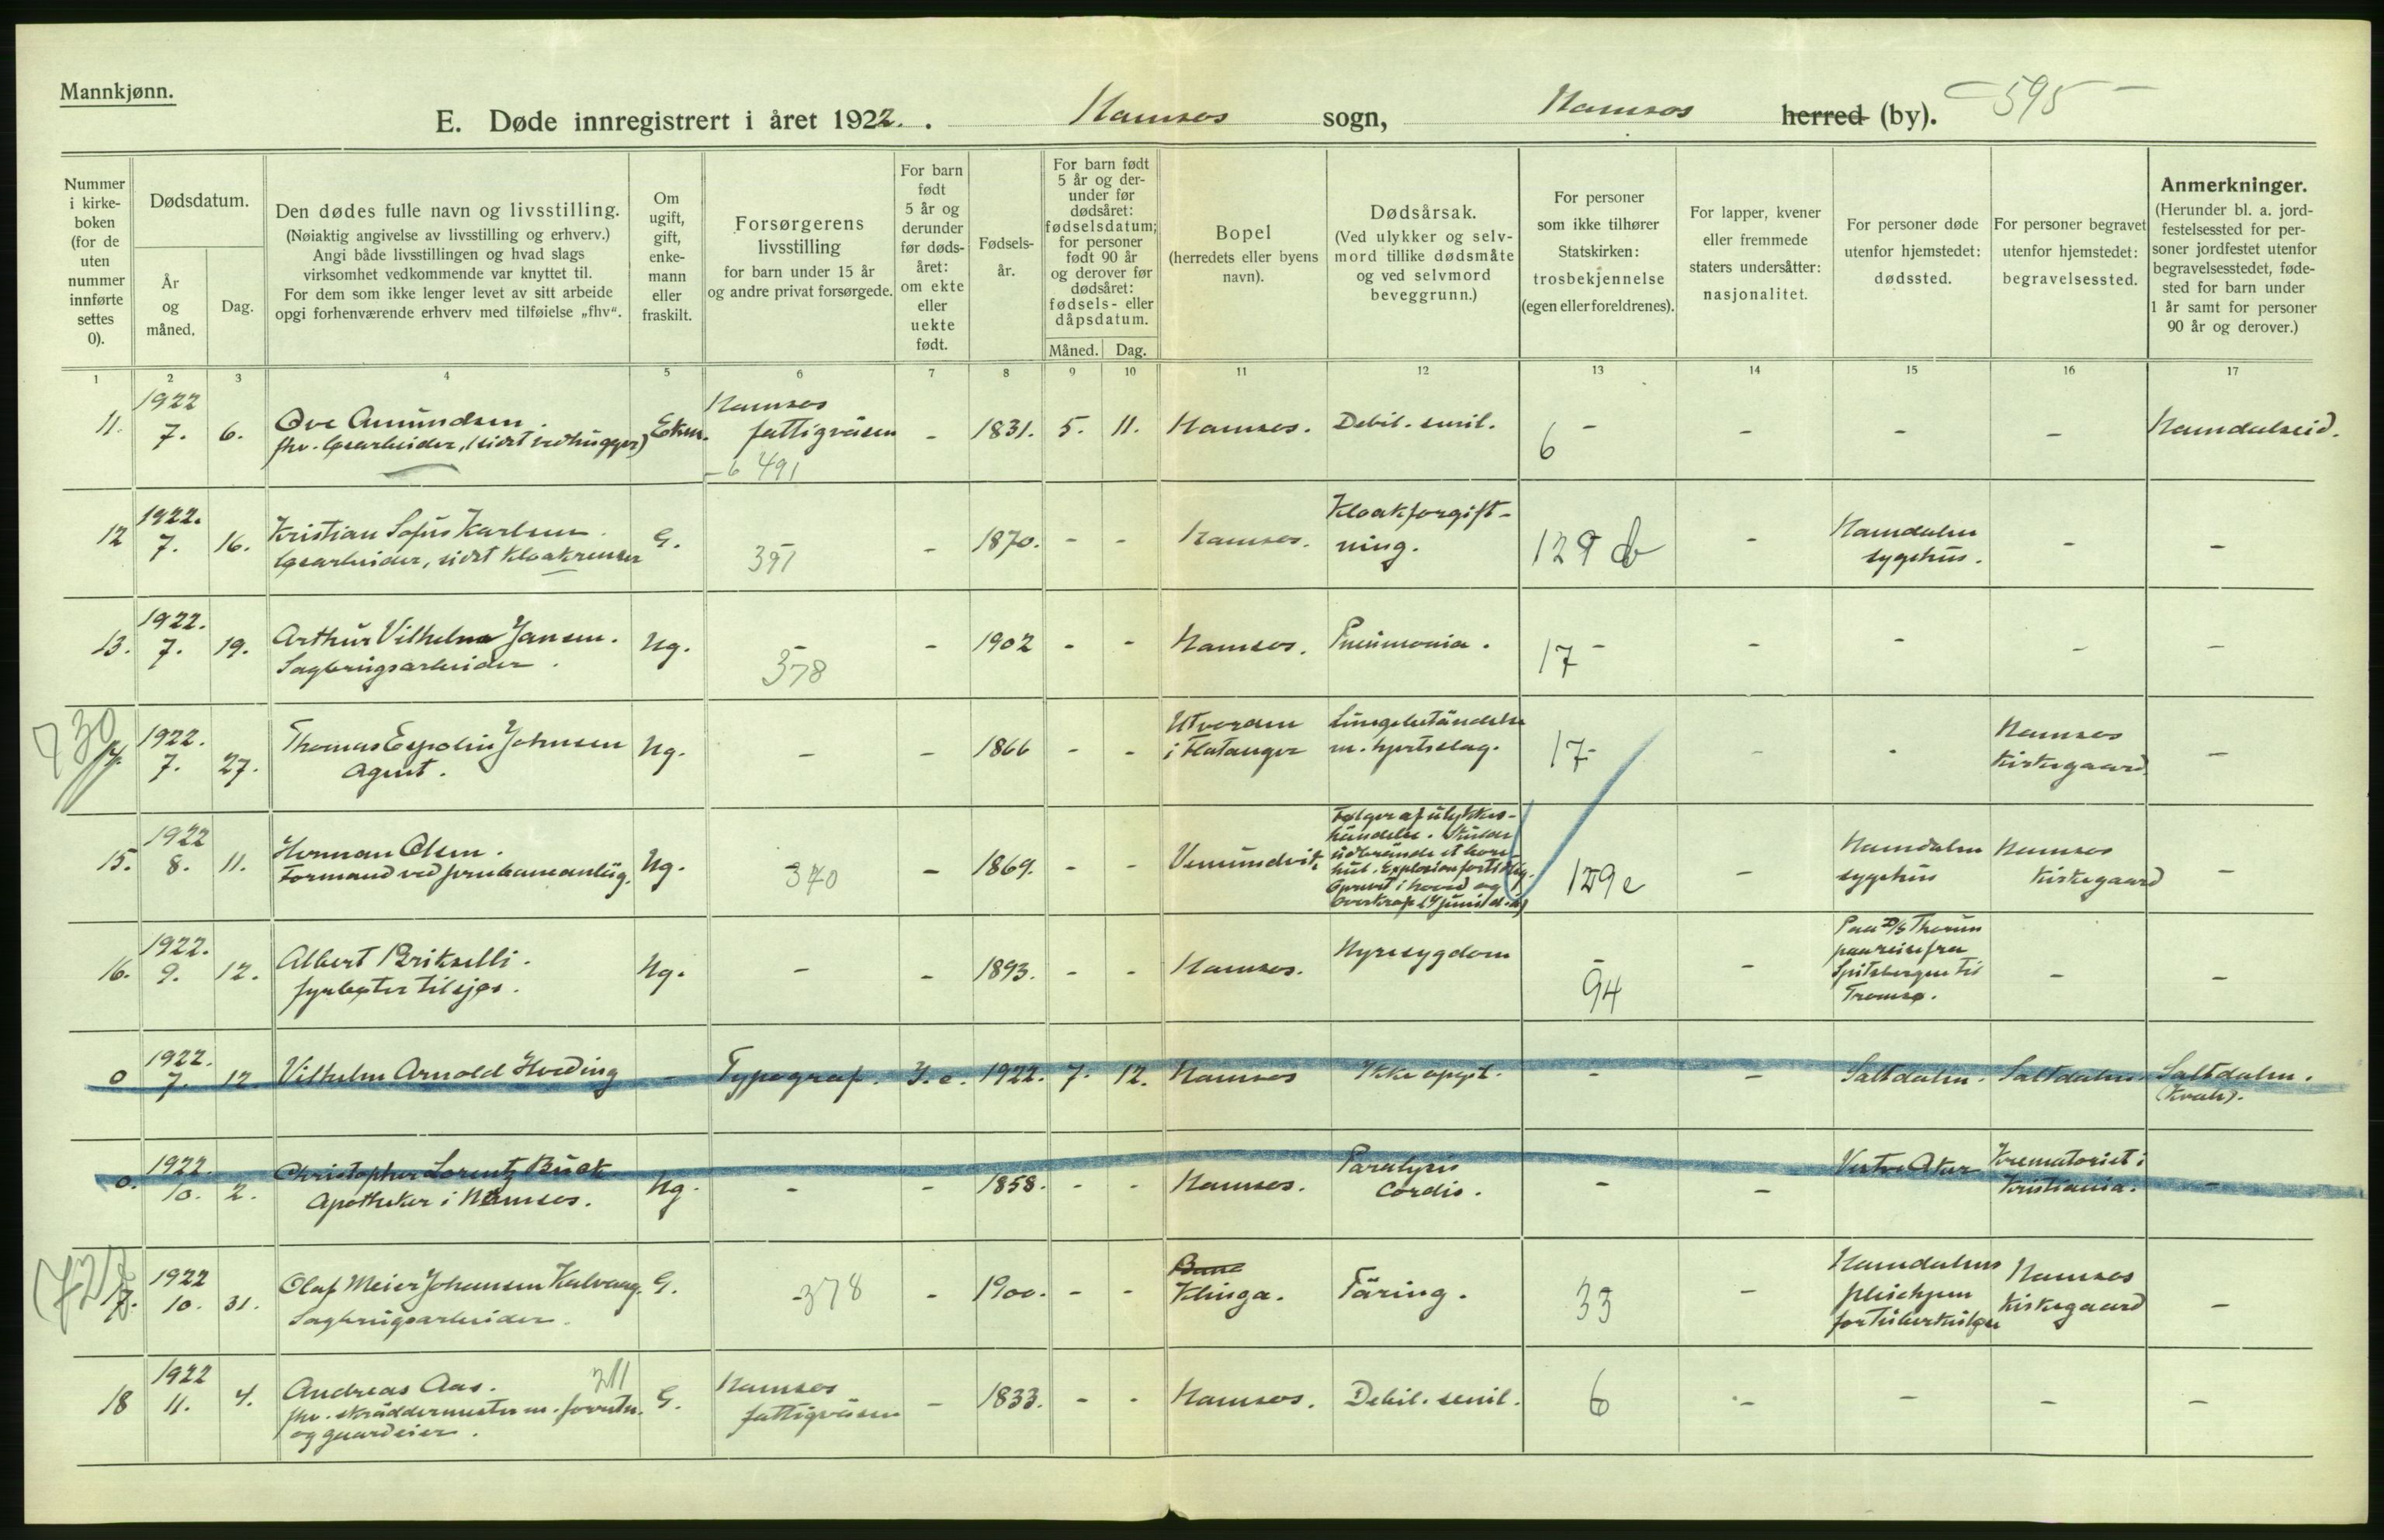 Mannkjønn.
E. Døde innregistrert i året 1922. Namsos sogn, Namsos herred (by). – 595 –
Nummer i kirke-boken (for de uten nummer innførte settes 0).
Dødsdatum.
År og måned.
Dag.
Den dødes fulle navn og livsstilling.
(Nøiaktig angivelse av livsstilling og erhverv.)
Angi både livsstillingen og hvad slags
virksomhet vedkommende var knyttet til.
For dem som ikke lenger levet av sitt arbeide
opgi forhenværende erhverv med tilføielse „fhv“.
Om ugift, gift, enke-mann eller fraskilt.
Forsørgerens livsstilling
for barn under 15 år
og andre privat forsørgede.
For barn født 5 år og derunder før døds-året: om ekte eller uekte født.
Fødsels-år.
For barn født 5 år og der-under før dødsåret: fødselsdatum; for personer født 90 år og derover før dødsåret: fødsels- eller dåpsdatum.
Måned.
Dag.
Bopel
(herredets eller byens navn).
Dødsårsak.
(Ved ulykker og selv-mord tillike dødsmåte og ved selvmord beveggrunn.)
For personer som ikke tilhører Statskirken: trosbekjennelse (egen eller foreldrenes).
For lapper, kvener eller fremmede staters undersåtter: nasjonalitet.
For personer døde utenfor hjemstedet: dødssted.
For personer begravet utenfor hjemstedet: begravelsessted.
Anmerkninger.
(Herunder bl. a. jord-festelsessted for per-soner jordfestet utenfor begravelsesstedet, føde-sted for barn under 1 år samt for personer 90 år og derover.)
1 2 3 4 5 6 7 8 9 10 11 12 13 14 15 16 17
11. 1922 7. 6. Ove Amundsen.
fhv. løsarbeider, (sidst vedhugger) Ekm. Namsos fattigvæsen – 6 491 – 1831. 5. 11. Namsos. Debil. senil. – 6 – – – Namdalseid.
12 1922. 7. 16. Kristian Sofus Karlsen.
løsarbeider, sidst kloakrenser G. – 391 – 1870. – – Namsos. Kloakforgift-
ning. 129 b – Namdalen
sygehus. – –
13. 1922. 7. 19. Arthur Vilhelm Jansen.
Sagbrugsarbeider. Ug. – 378 – 1902 – – Namsos. Pneumonia. 17 – – – – –
730
14. 1922. 7. 27. Thomas Espolin Johnsen
Agent. Ug. – – 1866 – – Utvorden
i Flatanger Lungebetændelse
m. hjerteslag. 17 – – – Namsos
Kirkegaard. –
15. 1922 8. 11. Herman Olsen.
Formand ved jernbaneanlæg. Ug. – 370 – 1869. – – Vemundvik Følger af ulykkes-
hændelse. Skulde
udbrænde et bore-
hul. Explosion fortidlig.
129 c – Namdalen
sygehus Namsos
Kirkegaard –
16. 1922. 9. 12. Albert Brikselli.
fyrbøter tilsjøs. Ug. – – 1893. – – Namsos. Nyresygdom – 94 – Paa D/S Thorun
paa reise fra
Spitsbergen til
Tromsø. – –
0 1922. 7. 12. Vilhelm Arnold Hveding – Typograf. I. e. 1922. 7. 12. Namsos Ikke opgit. – – Saltdalen. Saltdalen. Saltdalen.
0. 1922. 10. 2. Christopher Lorentz Buck
Apotheker i Namsos. Ug. – – 1858. – – Namsos. Paralysis
Cordis. – – Vestre Aker Krematoriet i
Kristiania. –
17. 1922 10. 31. Olaf Meier Johansen Kalvaag.
Sagbrugsarbeider. G. – 378 – 1900. – – Klinga. Tæring. 33 – Namdalens
pleiehjem
for tuberkuløse Namsos
Kirkegaard –
18 1922 11. 4. Andreas Aas. 211
fhv. skræddermester m. forretn.
og gaardeier. G. Namsos
fattigvæsen – 1833. – – Namsos. Debil. senil. 6 – – – –